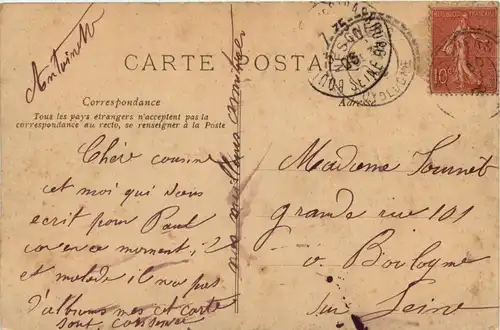 Antoinette
CARTE POSTALE
Correspondance
Tous les pays étrangers n'acceptent pas la
correspondance au recto, se renseigner à la Poste
Adresse
RÉPUBLIQUE FRANÇAISE
10
7-35
Chère cousine
cet moi qui vous
ecrit pour Paul
car en ce moment, il
et malade il n'a pas
d'albums mes cet carte
sont
nos meilleurs amitiées
Madame Tournet
grande rue 101
a Boulogne
sur Seine